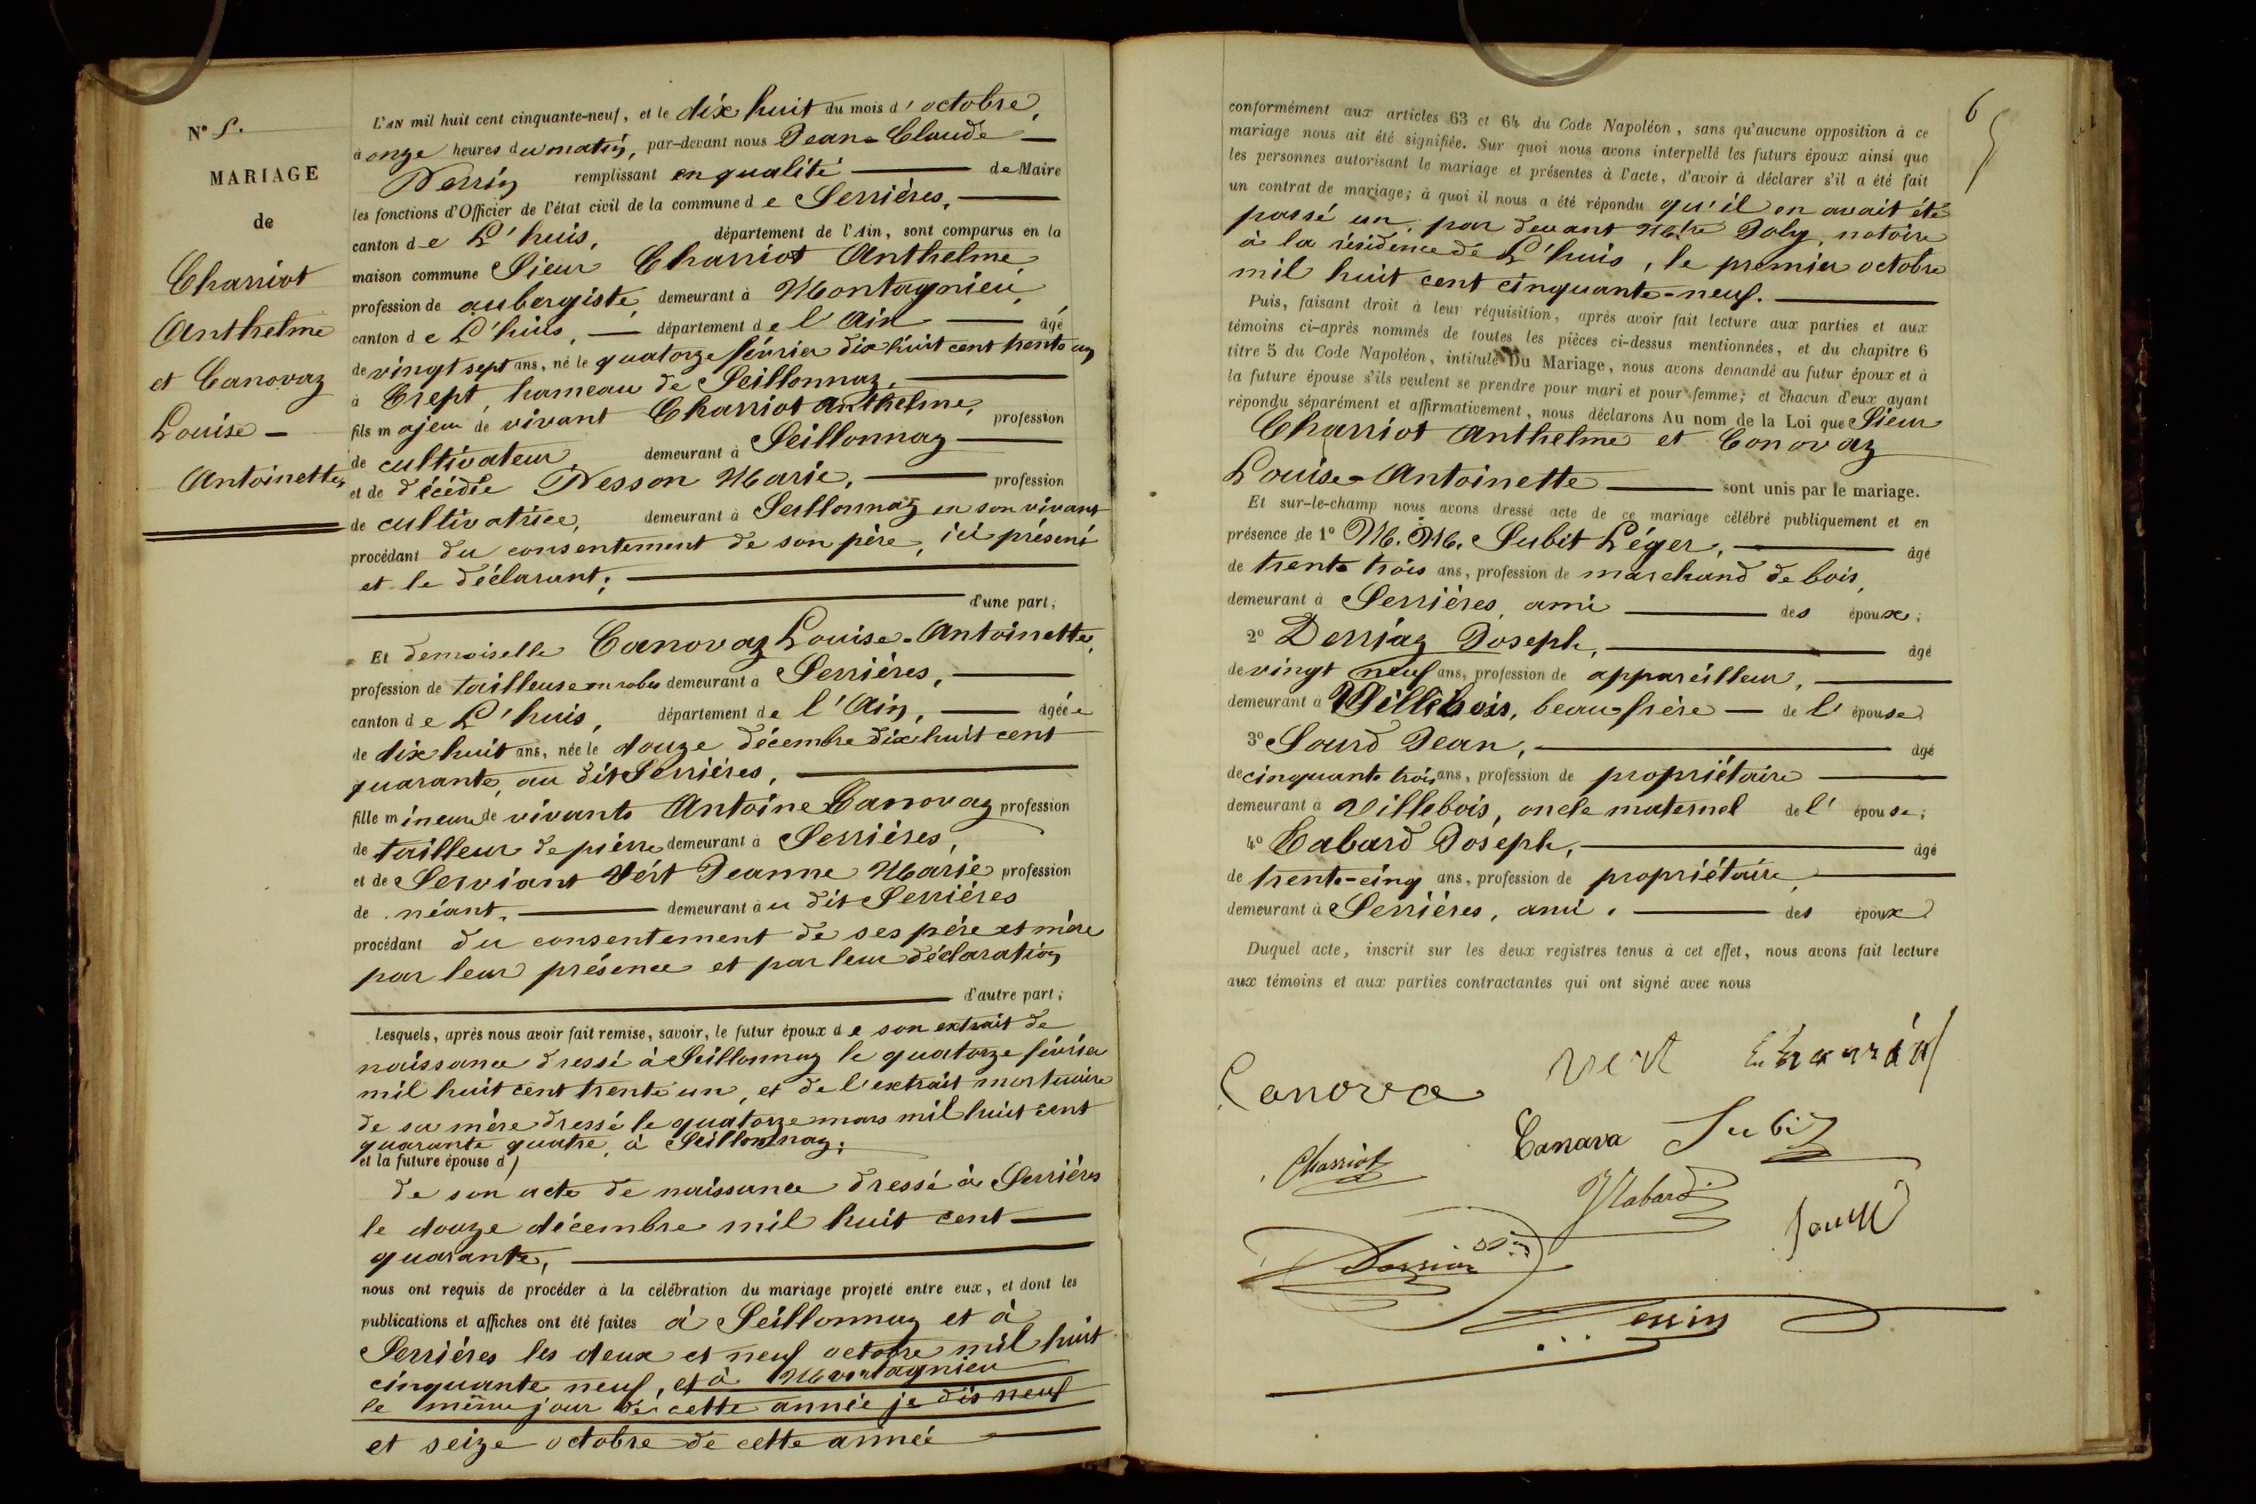 N° 5.
MARIAGE
de
Charriot
Anthelme
et Canovaz
Louise -
Antoinette
L'AN mil huit cent cinquante-neuf, et le dix huit du mois d'octobre,
à onze heures du matin, par-devant nous Jean-Claude
Perrin remplissant en qualité de Maire
les fonctions d'Officier de l'état civil de la commune de Serrières,
canton de L'huis, département de l'Ain, sont comparus en la
maison commune Sieur Charriot Anthelme
profession de aubergiste, demeurant à Montagnieu,
canton de L'huis, département de l'Ain âgé
de vingt sept ans, né le quatorze février dix huit cent trente un
à Crept, hameau de Seillonnaz.
fils majeur de vivant Charriot Anthelme, profession
de cultivateur demeurant à Seillonnaz
et de décédée Pesson Marie, profession
de cultivatrice, demeurant à Seillonnaz en son vivant
procédant du consentement de son père, ici présent
et le déclarant;
d'une part;
Et demoiselle Canovaz Louise-Antoinette,
profession de tailleuse en robes demeurant à Serrières,
canton de L'huis, département de l'Ain, âgée
de dix huit ans, née le douze décembre dix huit cent
quarante, au dit Serrières,
fille mineure de vivants Antoine Canovaz profession
de tailleur de pierre demeurant à Serrières,
et de Serviant Vért Jeanne Marie profession
de néant, demeurant au dit Serrières
procédant du consentement de ses père et mère
par leur présence et par leur déclaration
d'autre part;
Lesquels, après nous avoir fait remise, savoir, le futur époux de son extrait de
naissance dressé à Seillonnaz le quatorze février
mil huit cent trente un, et de l'extrait mortuaire
de sa mère dressé le quatorze mars mil huit cent
quarante quatre, à Seillonnaz;
et la future épouse d
de son acte de naissance dressé à Serrières
le douze décembre mil huit cent
quarante,
nous ont requis de procéder à la célébration du mariage projeté entre eux, et dont les
publications et affiches ont été faites à Seillonnaz et à
Serrières les deux et neuf octobre mil huit
cinquante neuf, et à Montagnieu
le même jour de cette année je dis neuf
et seize octobre de cette année
6
conformément aux articles 63 et 64 du Code Napoléon, sans qu'aucune opposition à ce
mariage nous ait été signifiée. Sur quoi nous avons interpellé les futurs époux ainsi que
les personnes autorisant le mariage et présentes à l'acte, d'avoir à déclarer s'il a été fait
un contrat de mariage; à quoi il nous a été répondu qu'il en avait été
passé un, par devant Mtre Joly, notaire
à la résidence de L'huis, le premier octobre
mil huit cent cinquante-neuf.
Puis, faisant droit à leur réquisition, après avoir fait lecture aux parties et aux
témoins ci-après nommés de toutes les pièces ci-dessus mentionnées, et du chapitre 6
titre 5 du Code Napoléon, intitulé Du Mariage, nous avons demandé au futur époux et à
la future épouse s'ils veulent se prendre pour mari et pour femme; et chacun d'eux ayant
répondu séparément et affirmativement, nous déclarons Au nom de la Loi que Sieur
Charriot Anthelme et Conovaz
Louise-Antoinette sont unis par le mariage.
Et sur-le-champ nous avons dressé acte de ce mariage célébré publiquement et en
présence de 1° M. M. Subit Léger, âgé
de trente trois ans, profession de marchand de bois,
demeurant à Serrières, ami des époux;
2° Derriaz Joseph, âgé
de vingt neuf ans, profession de appareilleur,
demeurant à Villebois, beau frère de l'épouse
3° Sourd Jean, âgé
de cinquante trois ans, profession de propriétaire
demeurant à Villebois, oncle maternel de l'épouse;
4° Cabard Joseph, âgé
de trente-cinq ans, profession de propriétaire,
demeurant à Serrières, ami. des époux
Duquel acte, inscrit sur les deux registres tenus à cet effet, nous avons fait lecture
aux témoins et aux parties contractantes qui ont signé avec nous
Canova vert
Charriot Canava Subit
JCabard
Perrin